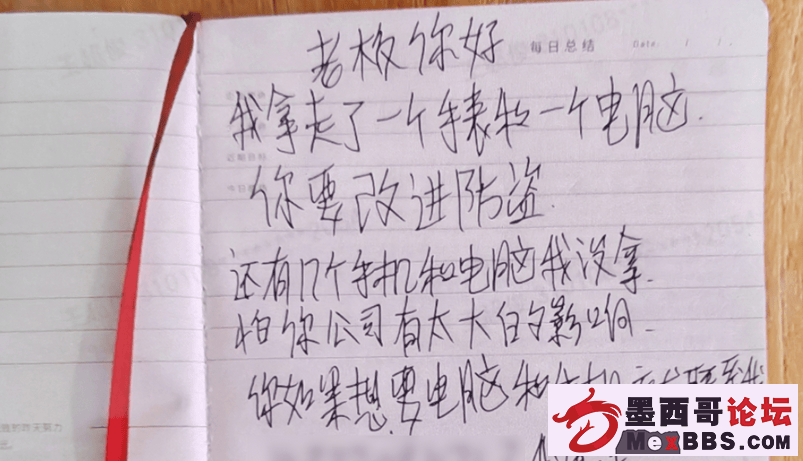 老板你好
每日总结 Date. / /
我拿走了一个手表和一个电脑.
你要改进防盗.
还有几个手机和电脑我没拿.
怕你公司有太大的影响.
你如果想要电脑和手机
墨西哥论坛
MexBBS.com